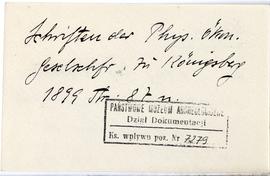 Schriften der Phys. ökon.
Gesellschft. zu Königsberg
1899 Th. 87 n.
PAŃSTWOWE MUZEUM ARCHEOLOGICZNE
Dział Dokumentacji
Ks. wpływu poz. Nr 7279